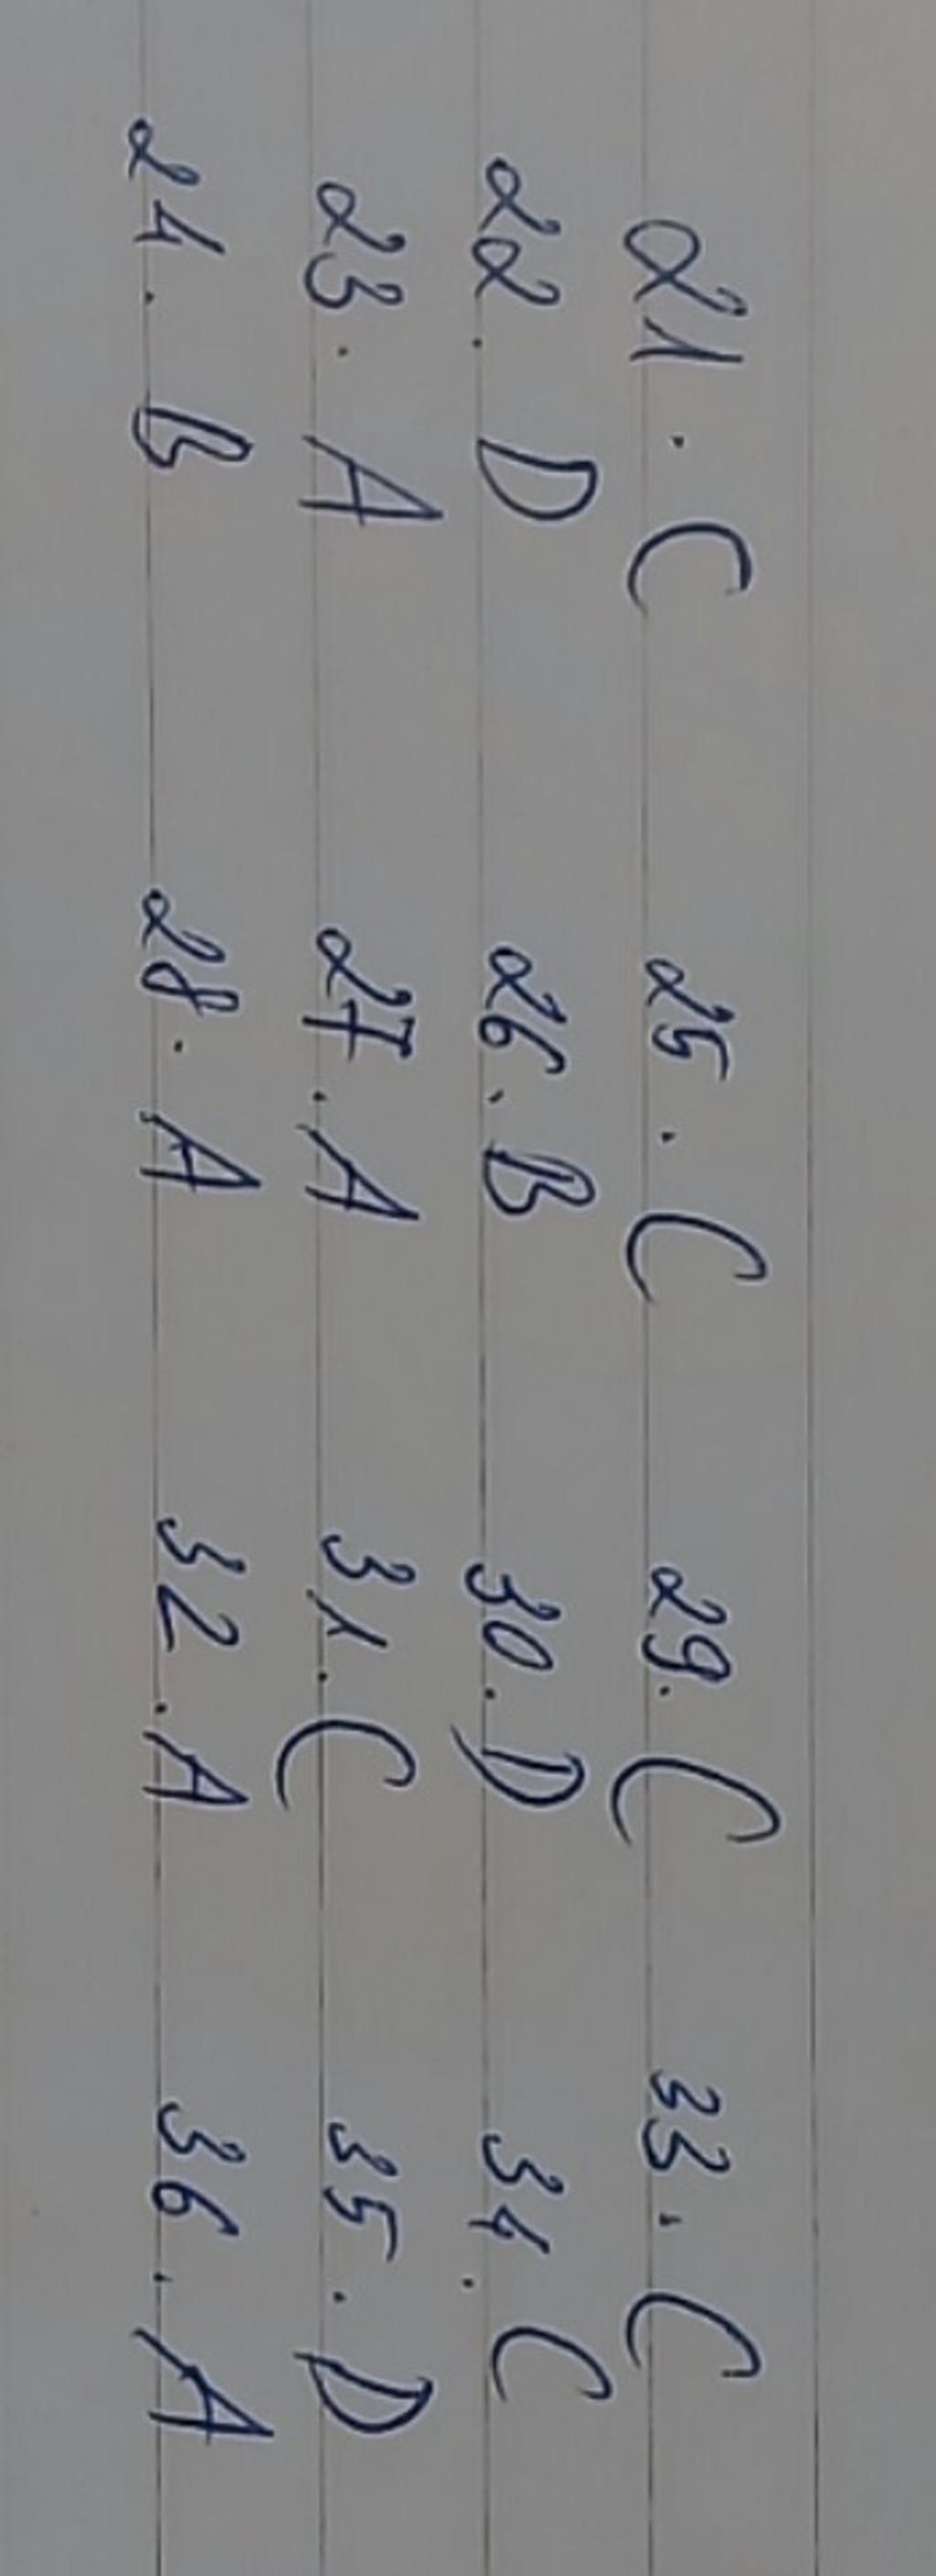 21. C 25. C 29. C 33. C
22. D 26. B 30. D 34. C
23. A 27. A 31. C 35. D
24. B 28. A 32. A 36. A